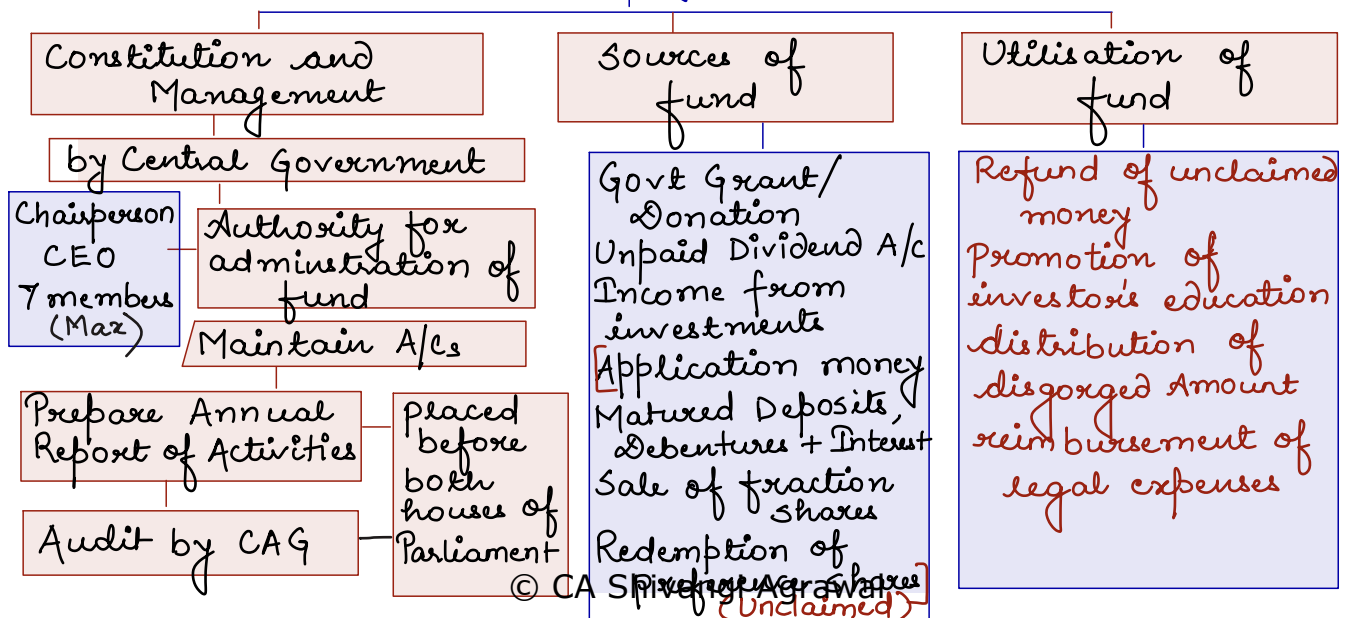 Constitution and
Management
by Central Government
Chairperson
CEO
7 members
(Max)
Authority for
adminstration of
fund
Maintain A/Cs
Prepare Annual
Report of Activities
placed
before
both
houses of
Parliament
Audit by CAG
Sources of
fund
Govt Grant/
Donation
Unpaid Dividend A/C
Income from
investments
Application money
Matured Deposits,
Debentures + Interest
Sale of fraction
shares
Redemption of
preference shares
(Unclaimed)
Utilisation of
fund
Refund of unclaimed
money
Promotion of
investor's education
distribution of
disgorged Amount
reimbursement of
legal expenses
© CA Shivangi Agrawal